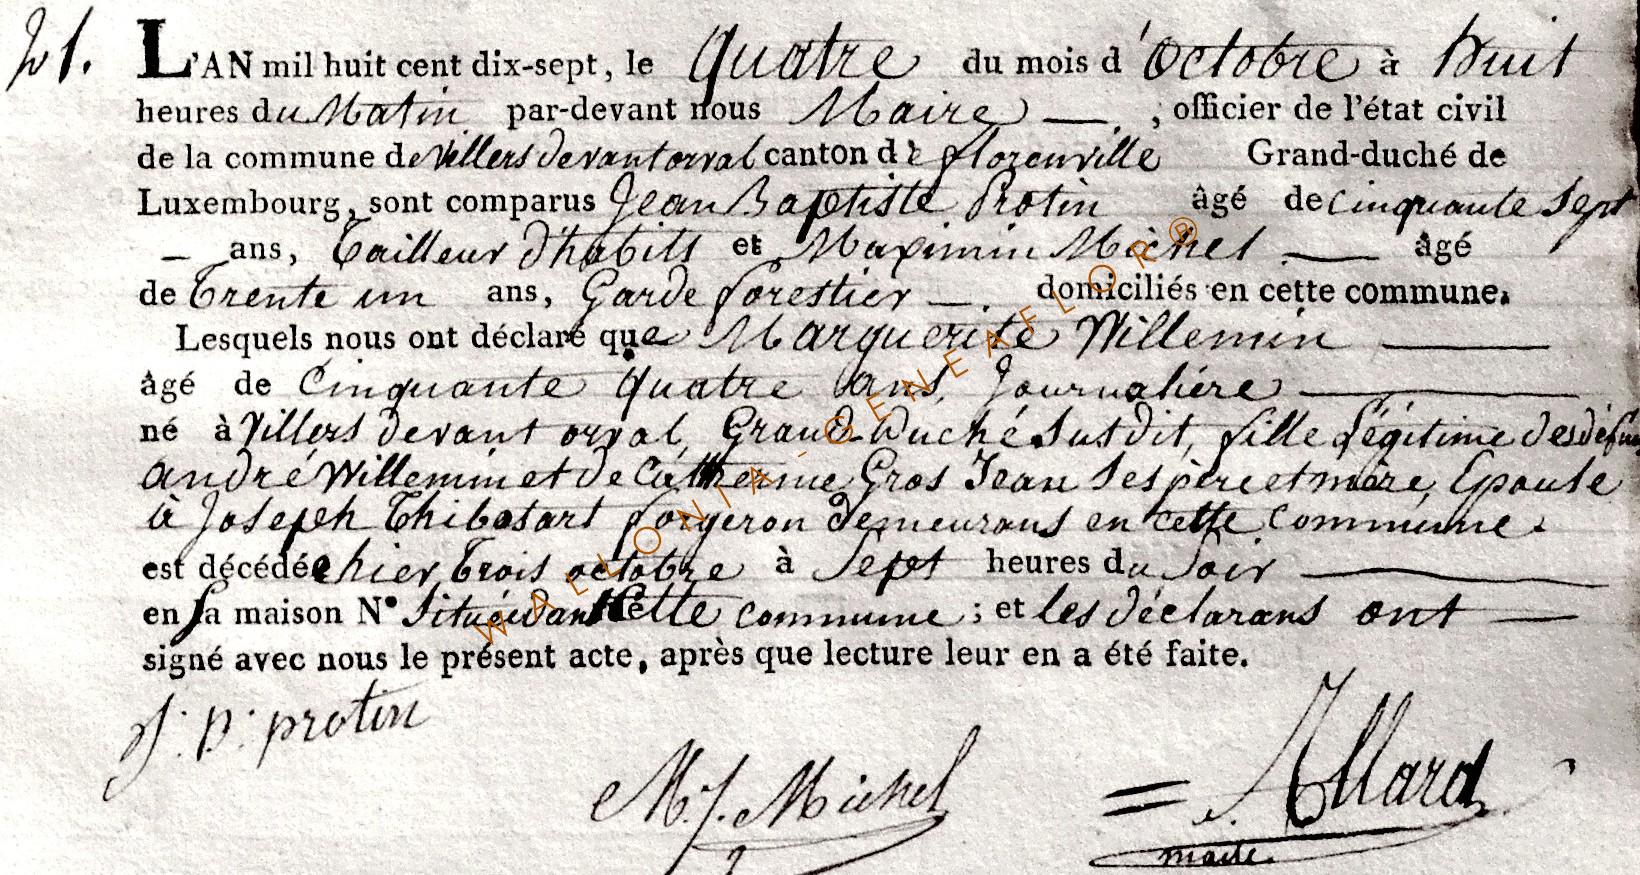 21.
L'AN mil huit cent dix-sept, le Quatre du mois d'Octobre à huit
heures du Matin par-devant nous Maire , officier de l'état civil
de la commune de Villers devant orval canton de florenville Grand-duché de
Luxembourg, sont comparus Jean Baptiste Protin âgé de cinquante Sept
ans, Tailleur d'habits et Maximin Michel âgé
de Trente un ans, Garde forestier domiciliés en cette commune.
Lesquels nous ont déclaré que Marguerite Willemin
âgé de Cinquante quatre ans, Journalière
né à Villers devant orval, Grand-Duché Susdit, fille légitime des défun
andré Willemin et de Catherine Gros Jean Ses père et mère, Epouse
à Joseph Thibosart forgeron demeurans en cette commune.
est décédée hier, Trois octobre à Sept heures du Soir
en sa maison N° Située dans Cette commune ; et les déclarans ont
signé avec nous le présent acte, après que lecture leur en a été faite.
J: B: protin
M. J. Michel
Allard
maire
WALLONIA - GENEAFLOR®